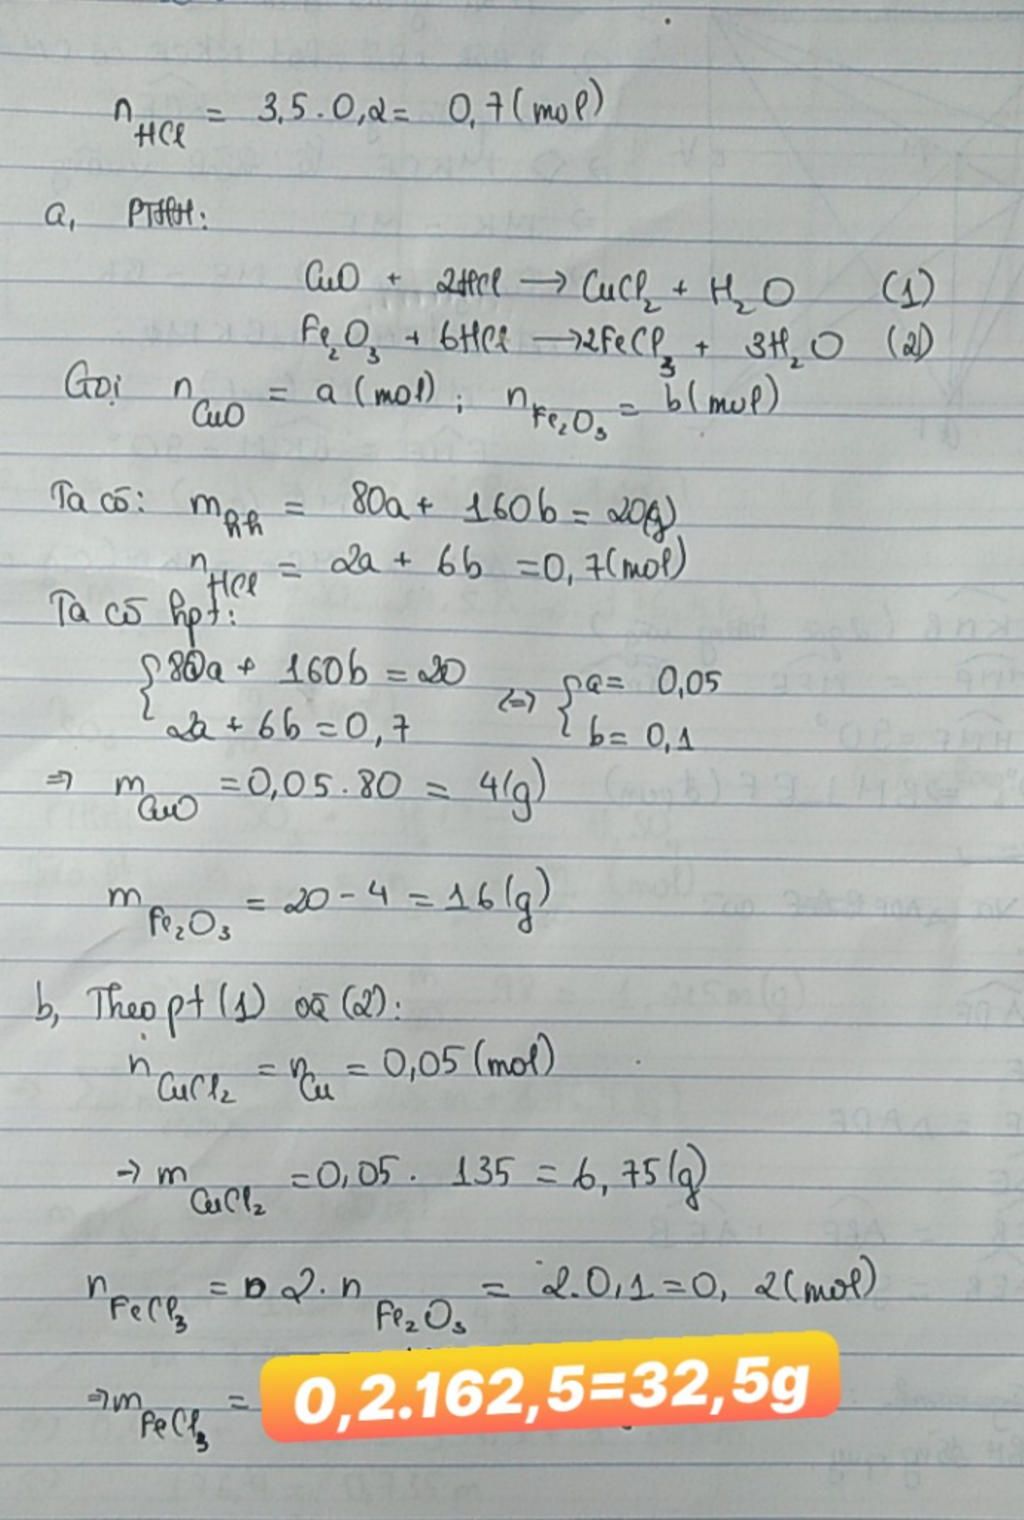 n HCl = 3,5 . 0,2 = 0,7 (mol)
a, PTHH:
CuO + 2HCl → CuCl₂ + H₂O (1)
Fe₂O₃ + 6HCl → 2FeCl₃ + 3H₂O (2)
Gọi n CuO = a (mol) ; n Fe₂O₃ = b (mol)
Ta có: m hh = 80a + 160b = 20(g)
n HCl = 2a + 6b = 0,7 (mol)
Ta có hpt:
{ 80a + 160b = 20
2a + 6b = 0,7 <=> { a = 0,05
b = 0,1
=> m CuO = 0,05 . 80 = 4 (g)
m Fe₂O₃ = 20 - 4 = 16 (g)
b, Theo pt (1) và (2):
n CuCl₂ = n Cu = 0,05 (mol)
→ m CuCl₂ = 0,05 . 135 = 6,75 (g)
n FeCl₃ = 2 . n Fe₂O₃ = 2 . 0,1 = 0,2 (mol)
=> m FeCl₃ = 0,2.162,5=32,5g